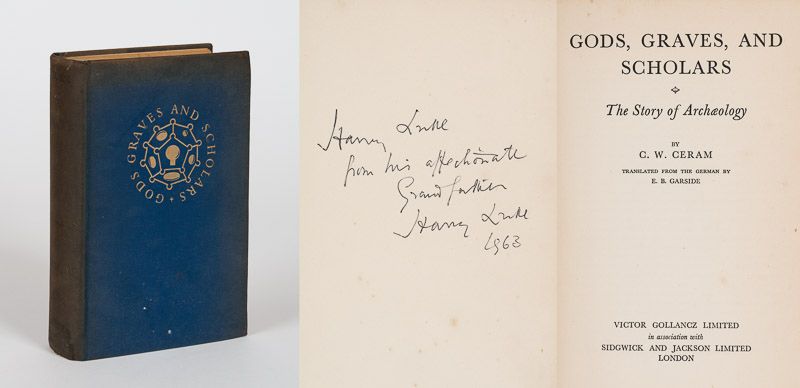 GODS GRAVES AND SCHOLARS
Harry Luke
from his affectionate
Grandfather
Harry Luke
1963
GODS, GRAVES, AND
SCHOLARS
The Story of Archæology
BY
C. W. CERAM
TRANSLATED FROM THE GERMAN BY
E. B. GARSIDE
VICTOR GOLLANCZ LIMITED
in association with
SIDGWICK AND JACKSON LIMITED
LONDON